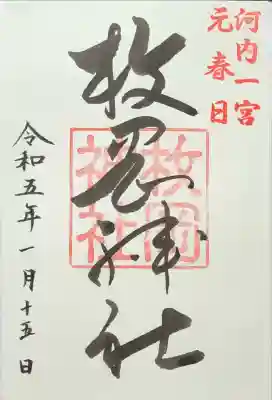 河内一宮
元春日
枚岡神社
枚岡
神社
令和五年一月十五日